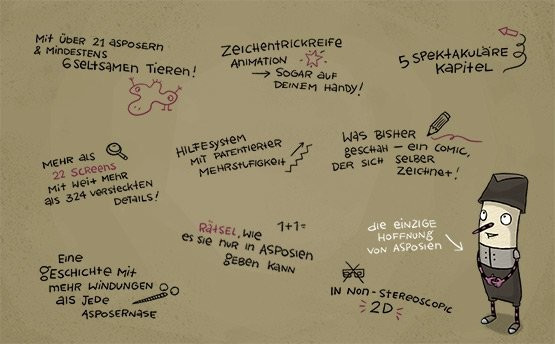 Mit über 21 Asposern
& mindestens
6 seltsamen Tieren!
Zeichentrickreife
Animation
→ sogar auf
deinem Handy!
5 spektakuläre
Kapitel
Mehr als
22 Screens
mit weit mehr
als 324 versteckten
Details!
Hilfesystem
mit patentierter
Mehrstufigkeit
Was bisher
geschah – ein Comic,
der sich selber
zeichnet!
Rätsel, wie
es sie nur in Asposien
geben kann
1+1=
die einzige
Hoffnung
von Asposien
Eine
Geschichte mit
mehr Windungen
als jede
Asposernase
in Non-Stereoscopic
2D